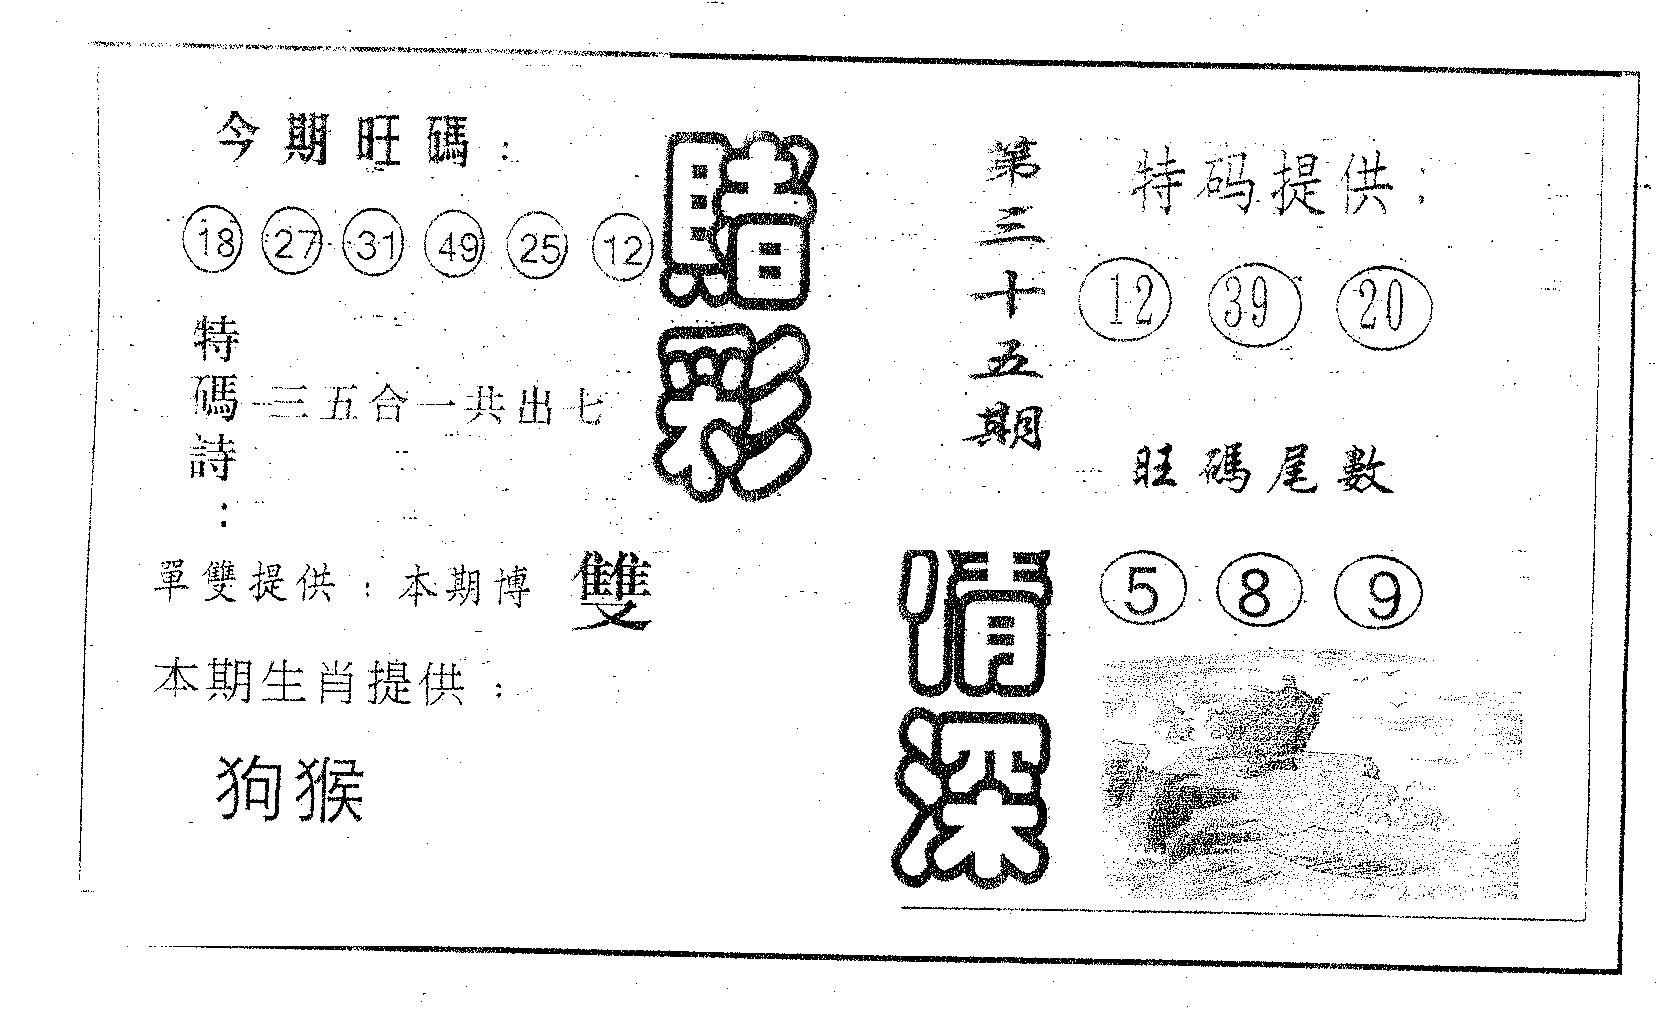 今期旺碼：
18 27 31 49 25 12
特碼詩：
三五合一共出七
單雙提供：本期博 雙
本期生肖提供：
狗猴
賭彩
情深
第三十五期
特码提供：
12 39 20
旺碼尾數
5 8 9